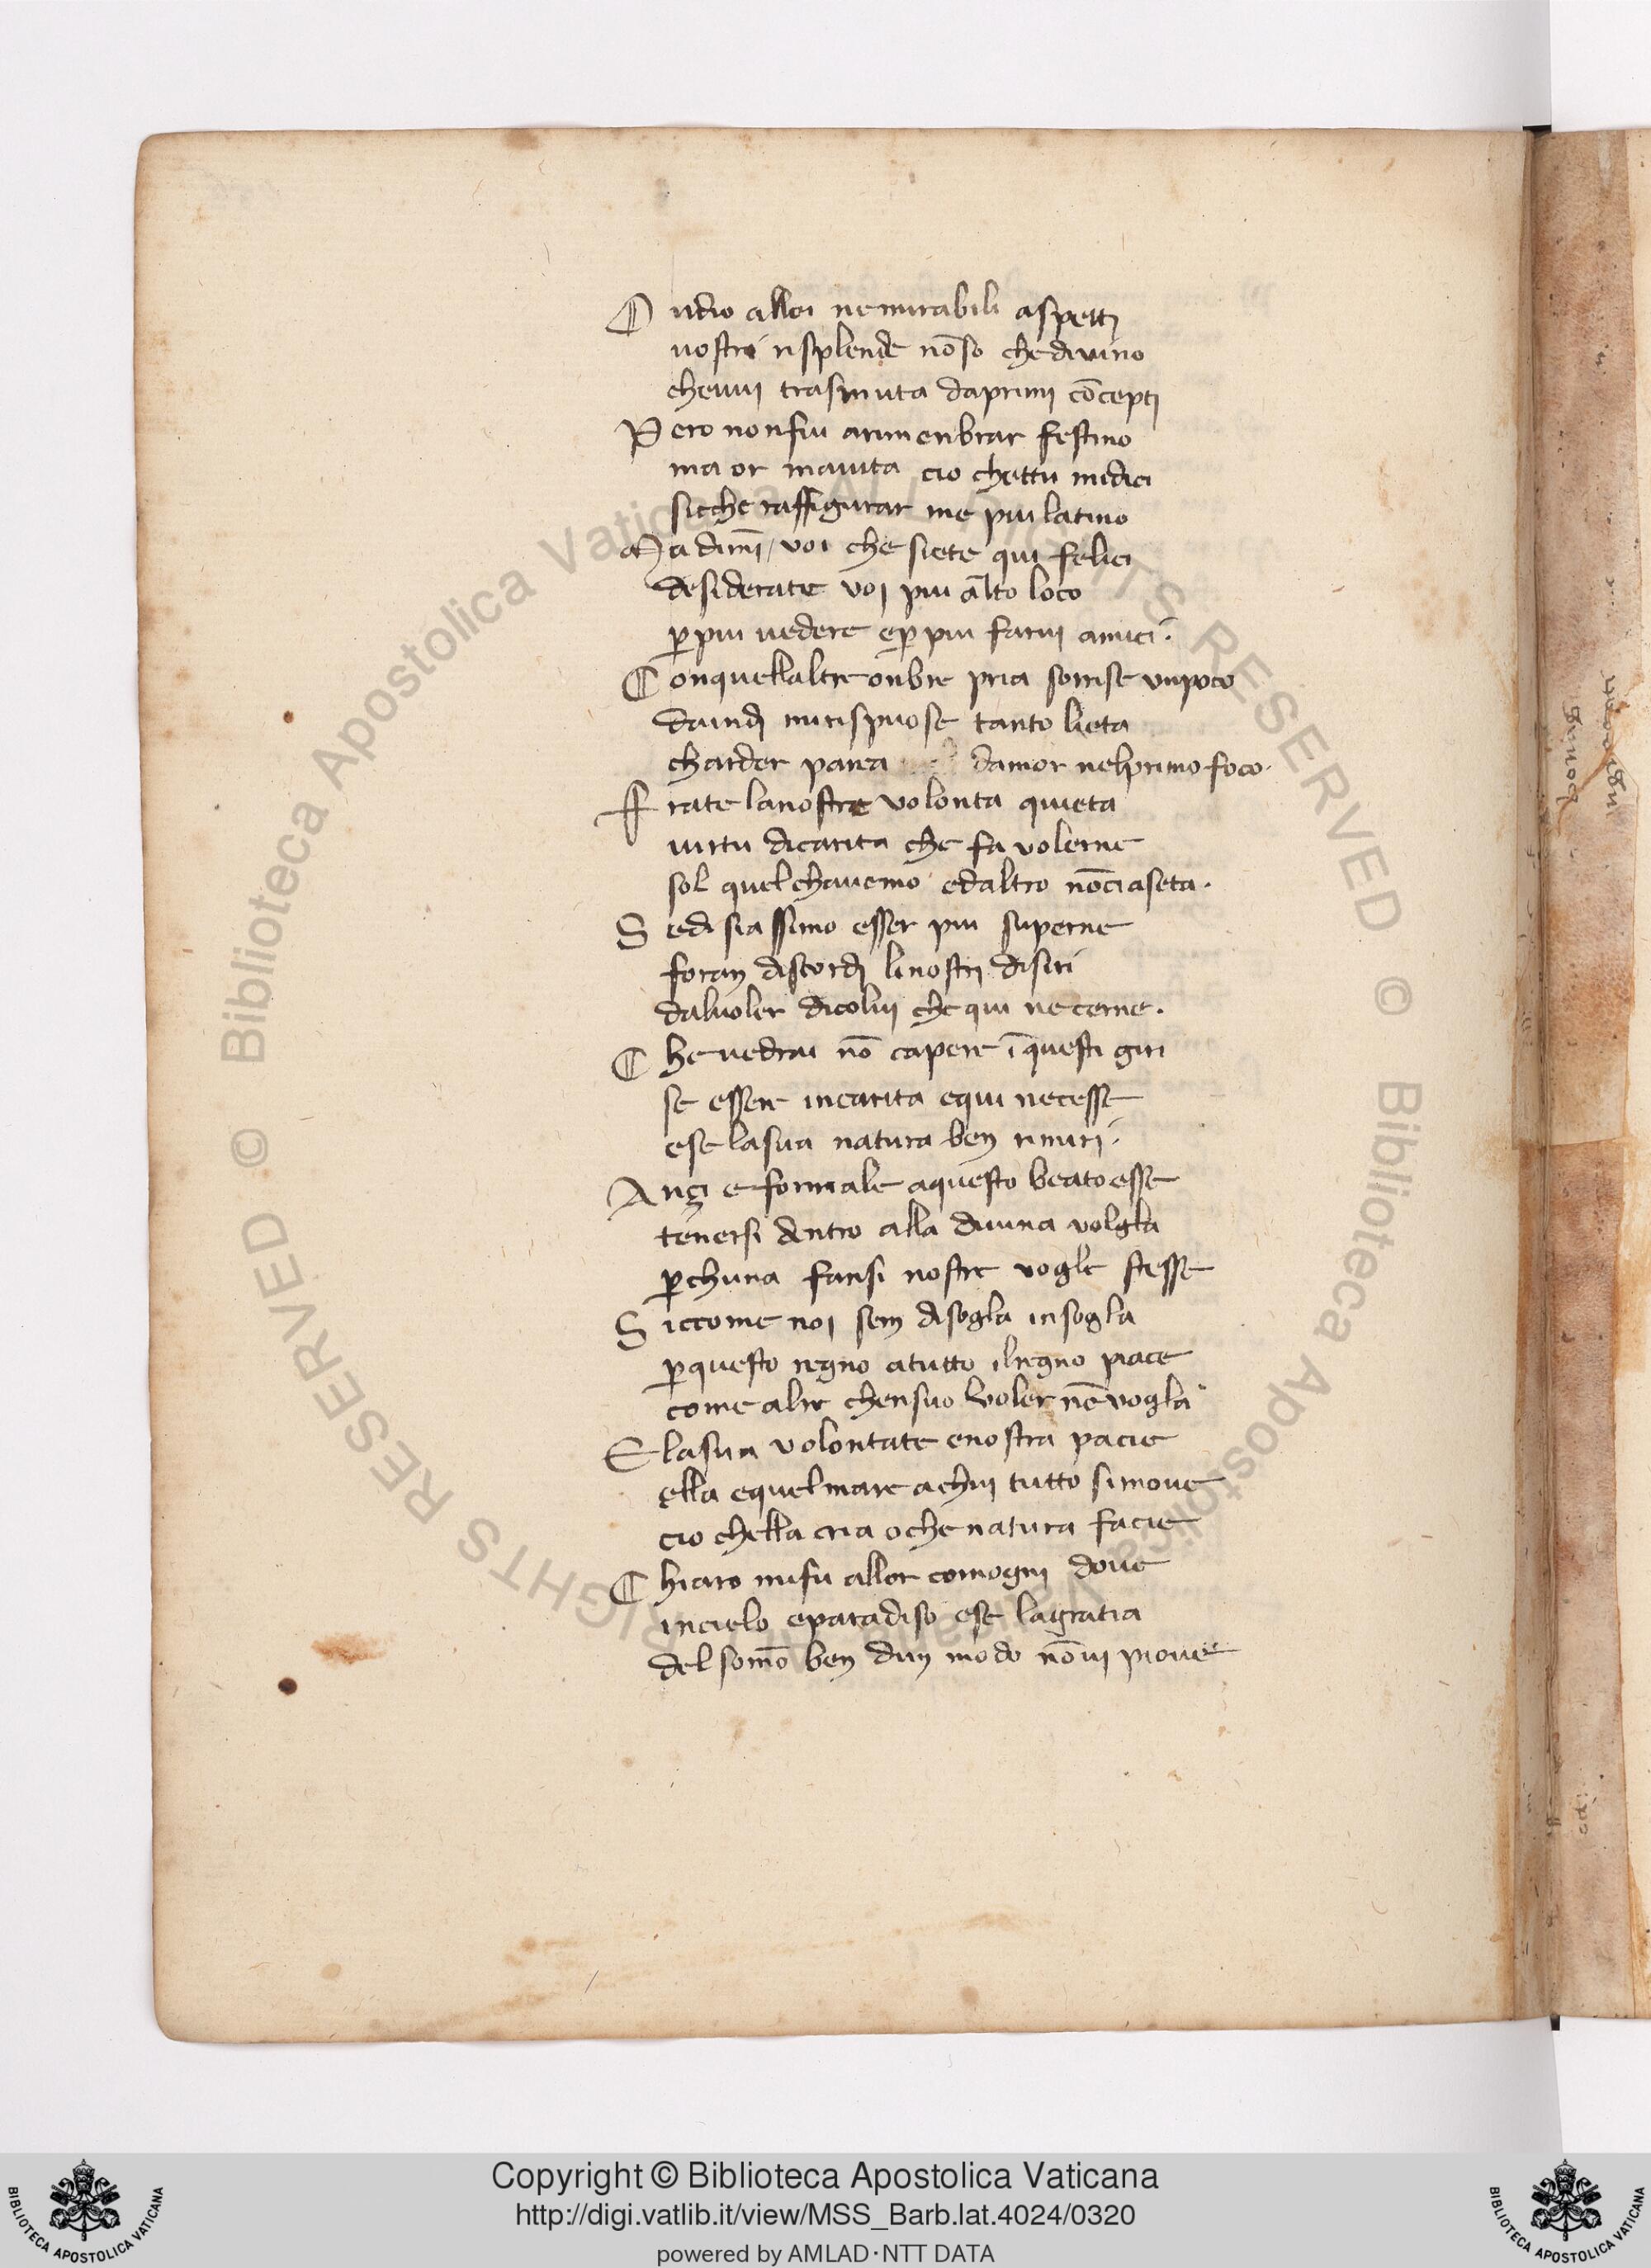 O ndio allei ne mirabili aspetti
nostri risplende nōso che divino
chevvi trasmuta daprimi cōcepti
P ero nonfui arimenbrar festino
ma or maiuta cio chettu midici
siche raffigurar me piu latino
M a dimī / voi che siete qui felici
desiderate voi piu alto loco
ꝑpiu uedere eꝑ piu farui amici.
C onquellaltre onbre pria sorrise unpoco
daindi mirispuose tanto lieta
charder parea damor nelprimo foco.
F rate lanostra volonta quieta
uirtu dicarita che fa volerne
sol quelchavemo edaltro nōciaseta.
S edisiassimo esser piu superne
foran discordi linostri disiri
dalvoler dicolui che qui necerne.
C he vedrai nō capere ī questi giri
se essere incarita equi necesse
ese lasua natura ben rimiri.
A nçi e formale aquesto beato esse
tenersi dentro alla divina volgla
ꝑchuna fansi nostre vogle stesse
S iccome noi sem disogla insogla
ꝑquesto regno atutto ilregno piace
come alre chensuo voler nē vogla
E lasua volontate enostra pacie
ella equelmare achui tutto simove
cio chella cria oche natura facie
C hiaro mifu allor comogni dove
incielo eparadiso ese lagratia
del somō ben dun modo nōvi piove
BIBLIOTECA APOSTOLICA VATICANA
Copyright © Biblioteca Apostolica Vaticana
http://digi.vatlib.it/view/MSS_Barb.lat.4024/0320
powered by AMLAD·NTT DATA
BIBLIOTECA APOSTOLICA VATICANA
© Biblioteca Apostolica Vaticana ALL RIGHTS RESERVED © Biblioteca Apostolica Vaticana ALL RIGHTS RESERVED